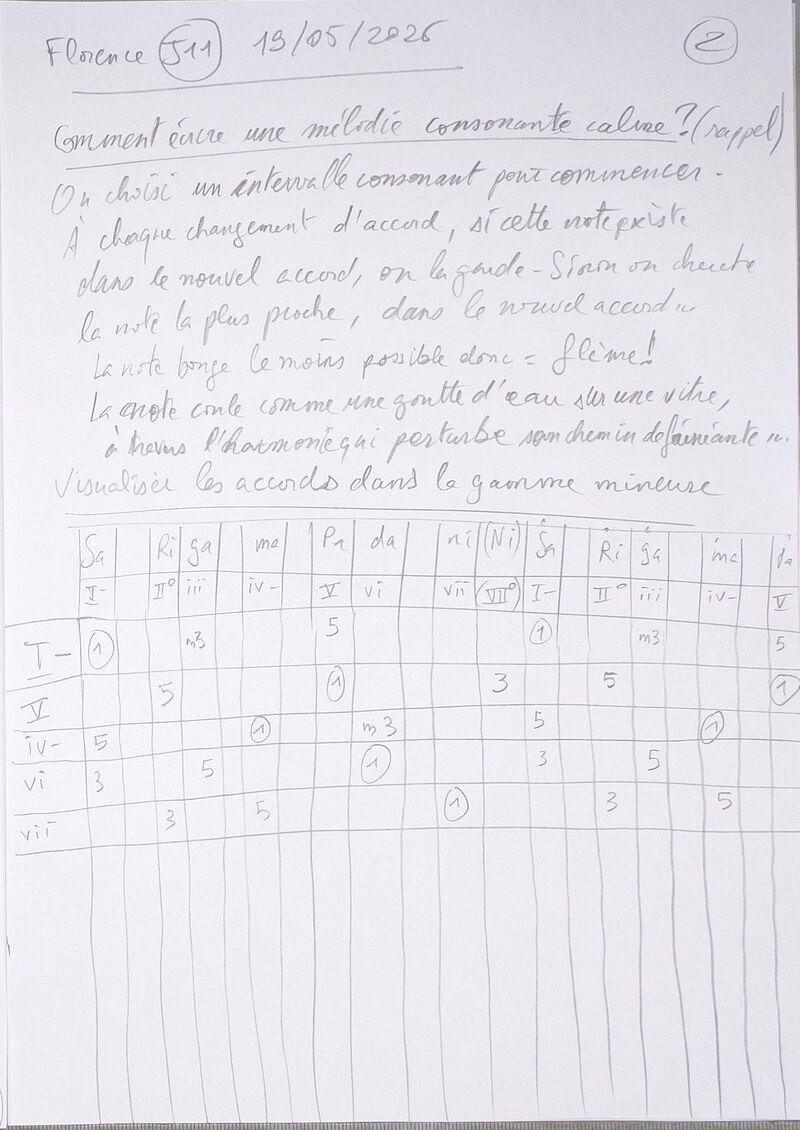 Florence J11 19/05/2026 2
Comment écrire une mélodie consonante calme ? (rappel)
On choisi un intervalle consonant pour commencer.
À chaque changement d'accord, si cette note existe
dans le nouvel accord, on la garde - Sinon on cherche
la note la plus proche, dans le nouvel accord...
La note bouge le moins possible donc = flème !
La note coule comme une goutte d'eau sur une vitre,
à travers l'harmonie qui perturbe son chemin de fainéante...
Visualiser les accords dans la gamme mineure
Sa Ri ga ma Pa da ni (Ni) Ṡa Ṙi ġa ṁa Ṗa
I- II° iii iv- V vi vii (VII°) I- II° iii iv- V
I- 1 m3 5 1 m3 5
V 5 1 3 5 1
iv- 5 1 m3 5 1
vi 3 5 1 3 5
vii 3 5 1 3 5